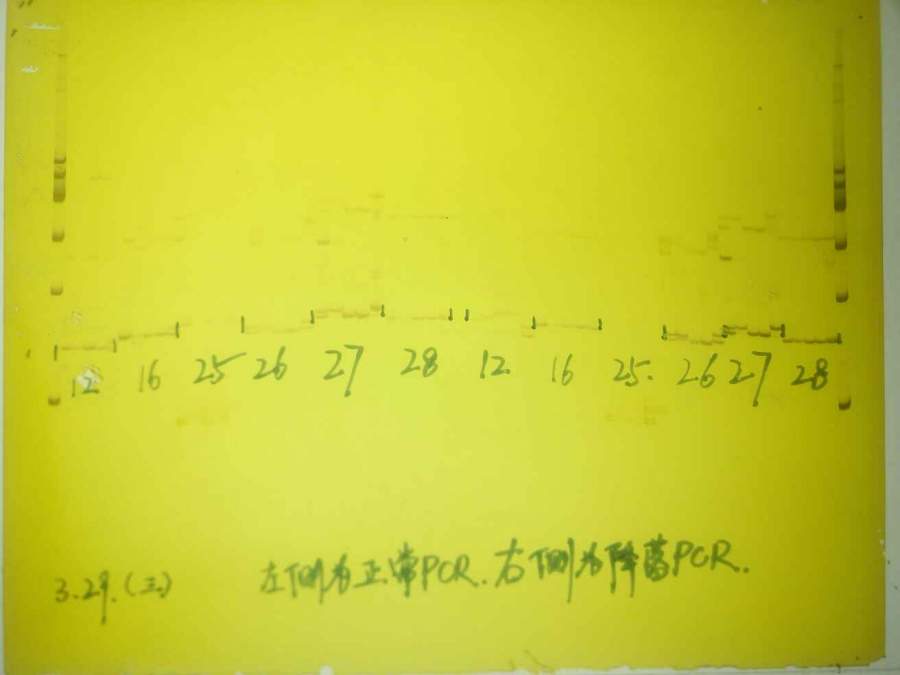 12. 16 25 26 27 28 12. 16 25. 26 27 28
3.29.(三) 左侧为正常PCR.右侧为降落PCR.